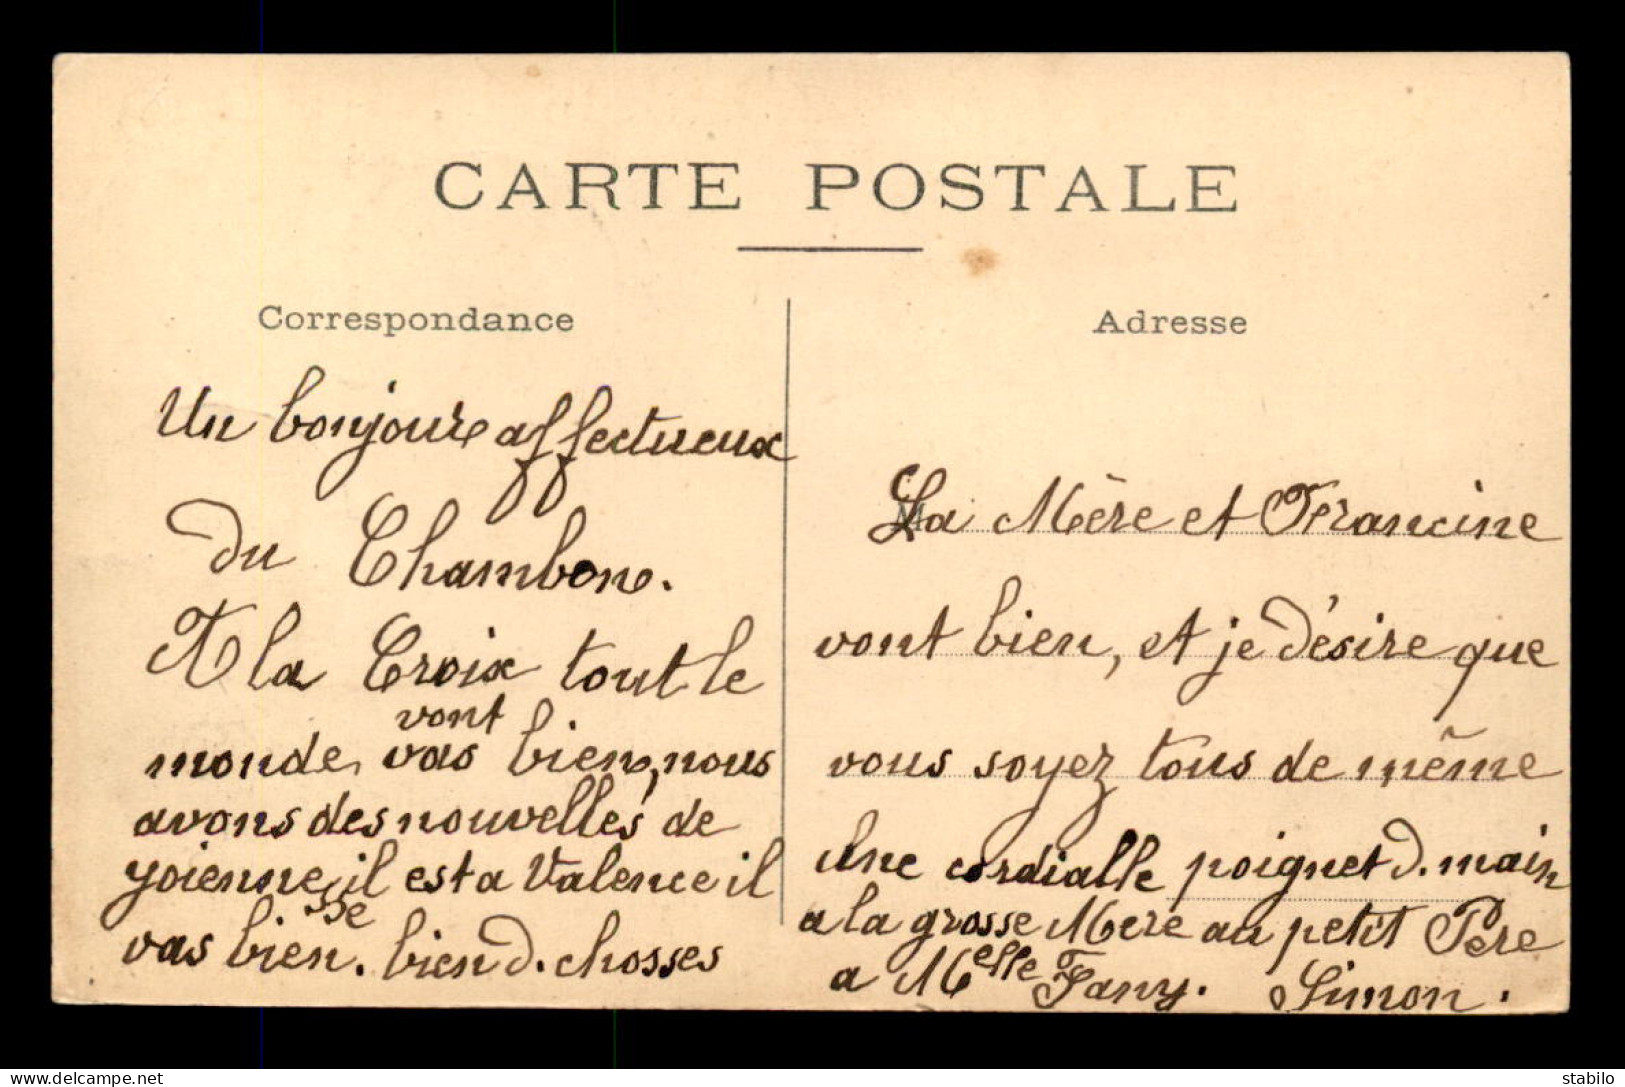 CARTE POSTALE
Correspondance
Un bonjoure affectueux
du Chambone.
A la Croix tout le
vont
monde, vas bien, nous
avons des nouvelles de
il est a Valence il
sse
vas bien. bien d. chosses
Adresse
M
La Mère et Francine
vont bien, et je désire que
vous soyez tous de même
Une cordialle poignet d. main
a la grosse Mere au petit Père
a Melle Fany. Simon.
stabilo